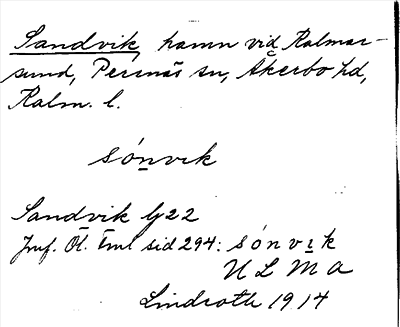 Sandvik, hamn vid Kalmar-
sund, Persnäs sn, Åkerbo hd,
Kalm. l.
sónvık
Sandvik G22
Jmf. Öl. sid 294: sónvık
U L M A
Lindroth 1914